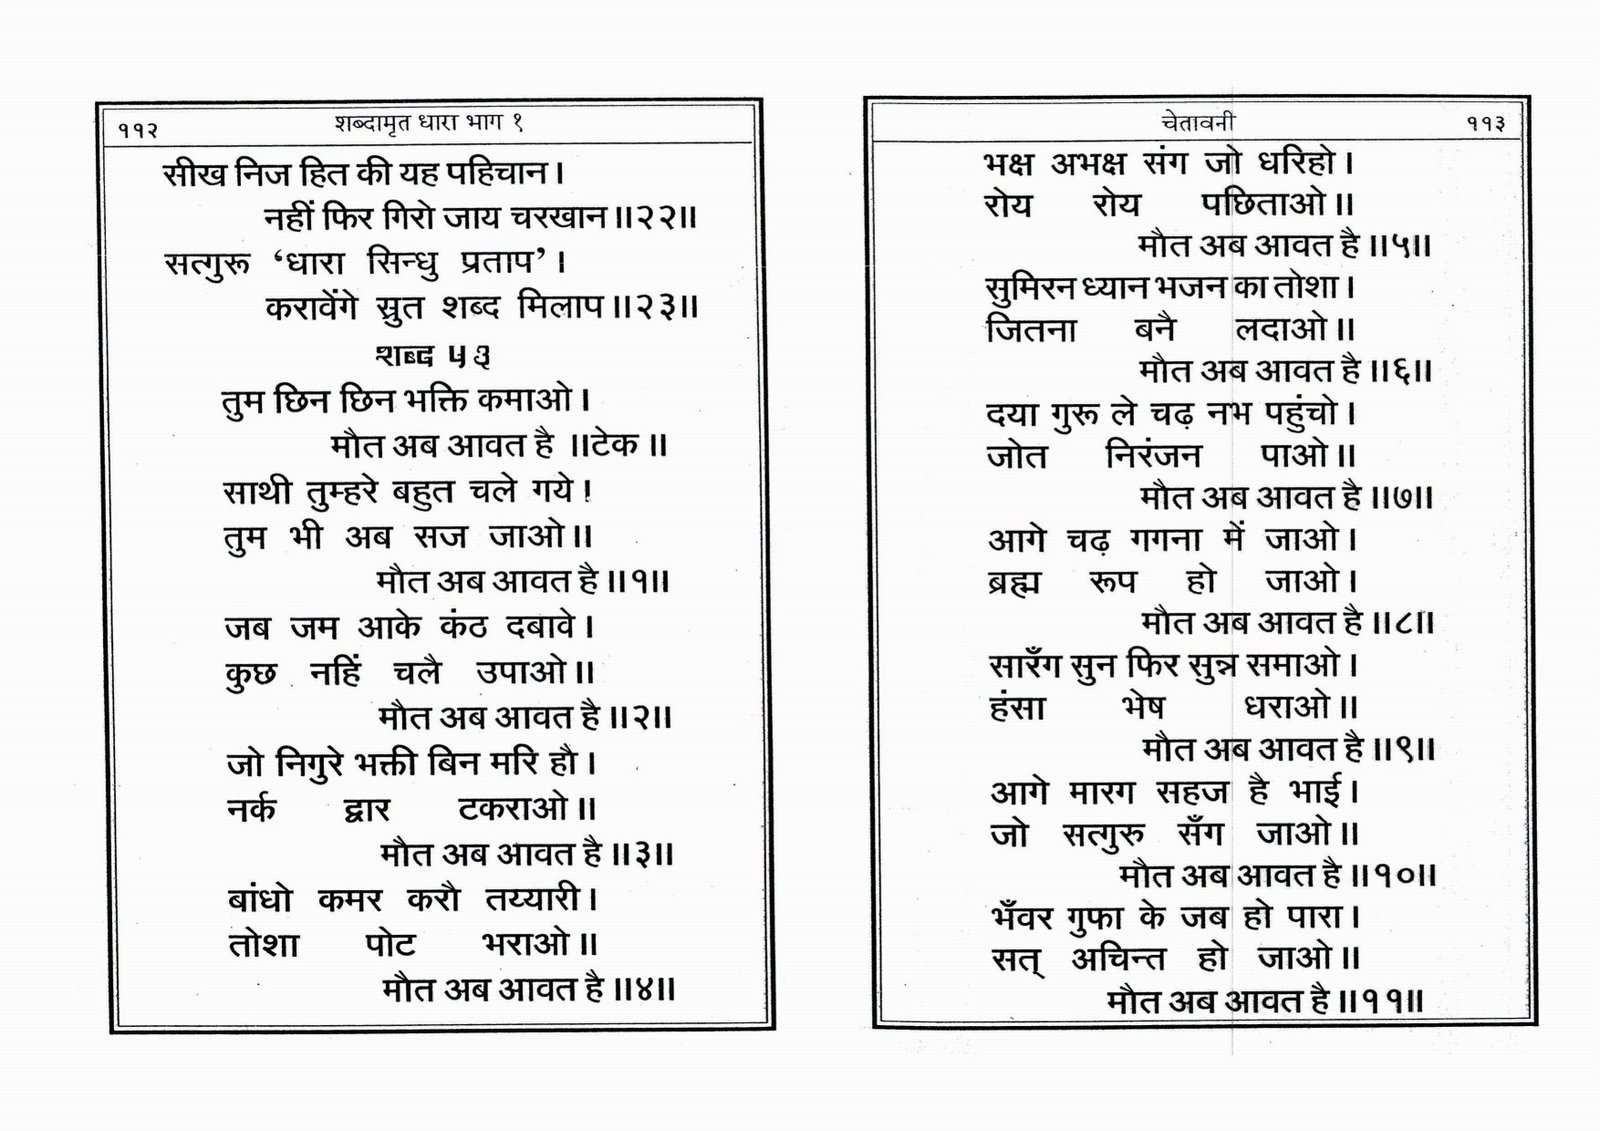 ११२ शब्दामृत धारा भाग १
सीख निज हित की यह पहिचान।
नहीं फिर गिरो जाय चरखान॥२२॥
सत्गुरू ‘धारा सिन्धु प्रताप’।
करावेंगे स्रुत शब्द मिलाप॥२३॥
शब्द ५३
तुम छिन छिन भक्ति कमाओ।
मौत अब आवत है ॥टेक॥
साथी तुम्हरे बहुत चले गये।
तुम भी अब सज जाओ॥
मौत अब आवत है॥१॥
जब जम आके कंठ दबावे।
कुछ नहिं चलै उपाओ॥
मौत अब आवत है॥२॥
जो निगुरे भक्ती बिन मरि हौ।
नर्क द्वार टकराओ॥
मौत अब आवत है॥३॥
बांधो कमर करौ तय्यारी।
तोशा पोट भराओ॥
मौत अब आवत है॥४॥
चेतावनी ११३
भक्ष अभक्ष संग जो धरिहो।
रोय रोय पछिताओ॥
मौत अब आवत है॥५॥
सुमिरन ध्यान भजन का तोशा।
जितना बनै लदाओ॥
मौत अब आवत है॥६॥
दया गुरू ले चढ़ नभ पहुंचो।
जोत निरंजन पाओ॥
मौत अब आवत है॥७॥
आगे चढ़ गगना में जाओ।
ब्रह्म रूप हो जाओ।
मौत अब आवत है॥८॥
सारँग सुन फिर सुन्न समाओ।
हंसा भेष धराओ॥
मौत अब आवत है॥९॥
आगे मारग सहज है भाई।
जो सत्गुरु सँग जाओ॥
मौत अब आवत है॥१०॥
भँवर गुफा के जब हो पारा।
सत् अचिन्त हो जाओ॥
मौत अब आवत है॥११॥